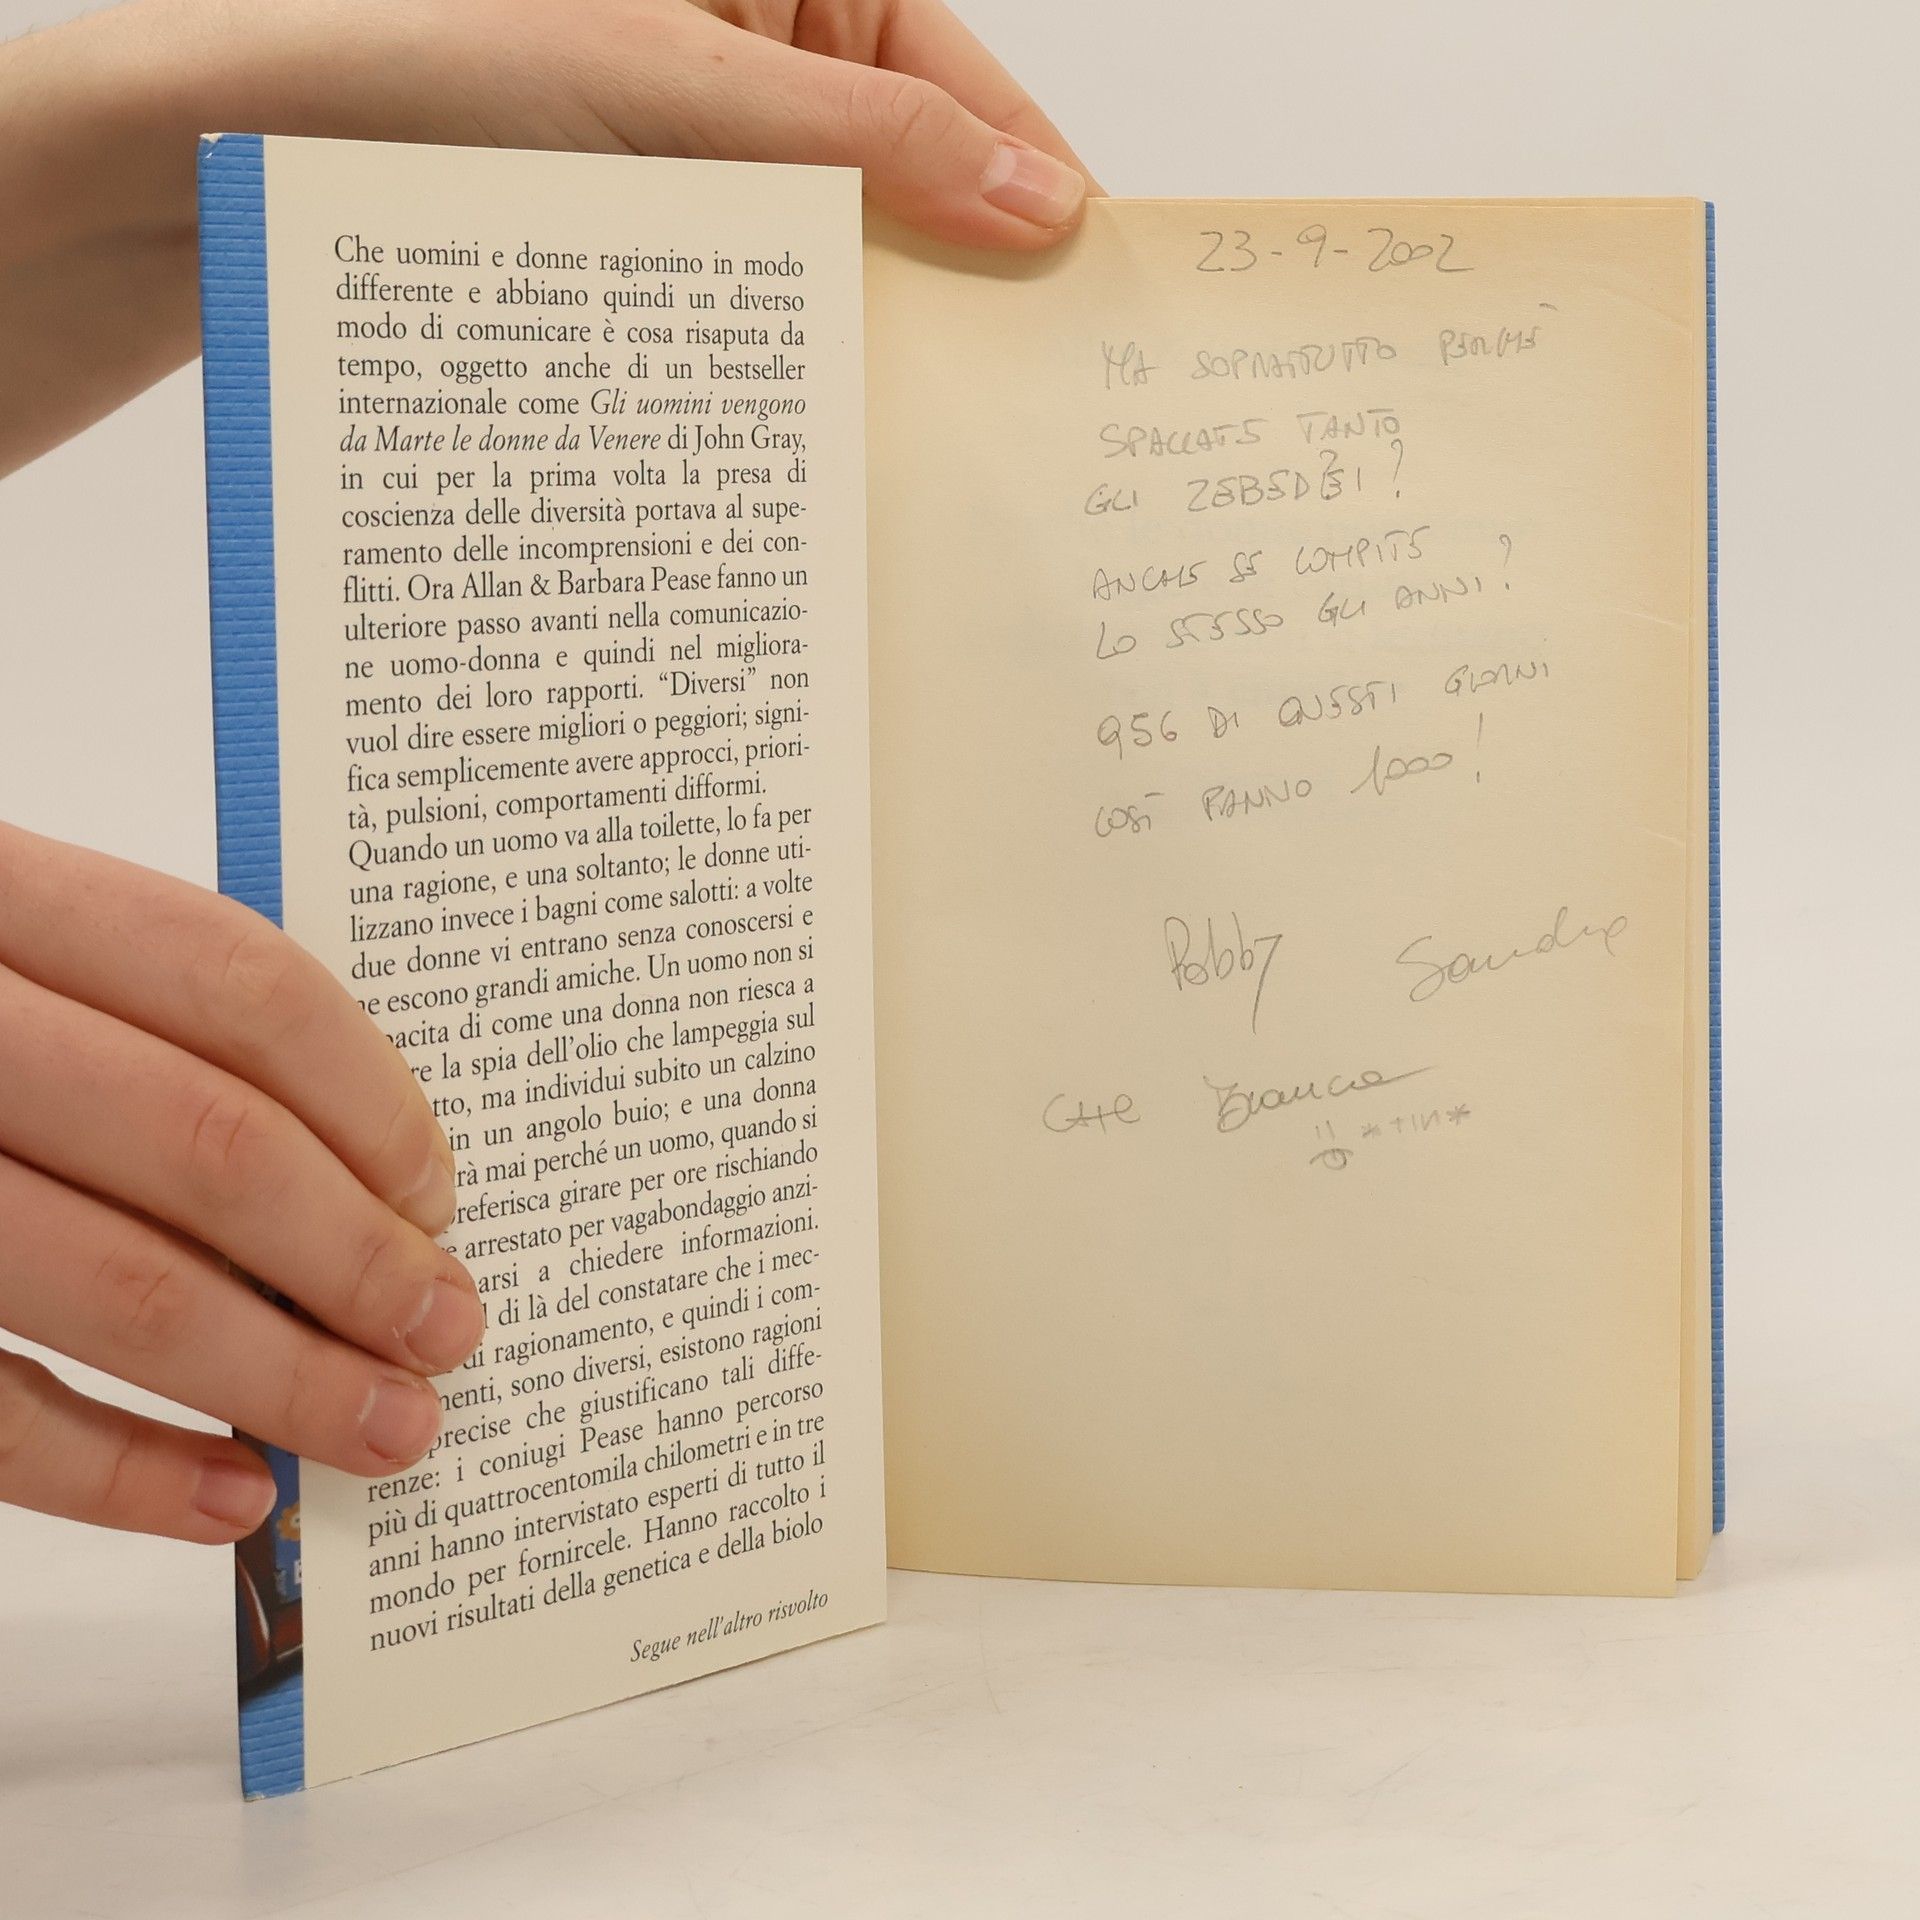 Che uomini e donne ragionino in modo
differente e abbiano quindi un diverso
modo di comunicare è cosa risaputa da
tempo, oggetto anche di un bestseller
internazionale come Gli uomini vengono
da Marte le donne da Venere di John Gray,
in cui per la prima volta la presa di
coscienza delle diversità portava al supe-
ramento delle incomprensioni e dei con-
flitti. Ora Allan & Barbara Pease fanno un
ulteriore passo avanti nella comunicazio-
ne uomo-donna e quindi nel migliora-
mento dei loro rapporti. “Diversi” non
vuol dire essere migliori o peggiori; signi-
fica semplicemente avere approcci, priori-
tà, pulsioni, comportamenti difformi.
Quando un uomo va alla toilette, lo fa per
una ragione, e una soltanto; le donne uti-
lizzano invece i bagni come salotti: a volte
due donne vi entrano senza conoscersi e
ne escono grandi amiche. Un uomo non si
pacita di come una donna non riesca a
re la spia dell’olio che lampeggia sul
tto, ma individui subito un calzino
in un angolo buio; e una donna
rà mai perché un uomo, quando si
preferisca girare per ore rischiando
e arrestato per vagabondaggio anzi-
arsi a chiedere informazioni.
l di là del constatare che i mec-
di ragionamento, e quindi i com-
menti, sono diversi, esistono ragioni
precise che giustificano tali diffe-
renze: i coniugi Pease hanno percorso
più di quattrocentomila chilometri e in tre
anni hanno intervistato esperti di tutto il
mondo per fornircele. Hanno raccolto i
nuovi risultati della genetica e della biolo
Segue nell’altro risvolto
23-9-2002
MA SOPRATTUTTO PERCHÈ
SPACCATE TANTO
GLI ZEBEDEI?
ANCHE SE COMPITE
LO STESSO GLI ANNI?
956 DI QUESTI GIORNI
COSÌ FANNO 1000!
Robby Sandra
Cate Bianca
*+IN*